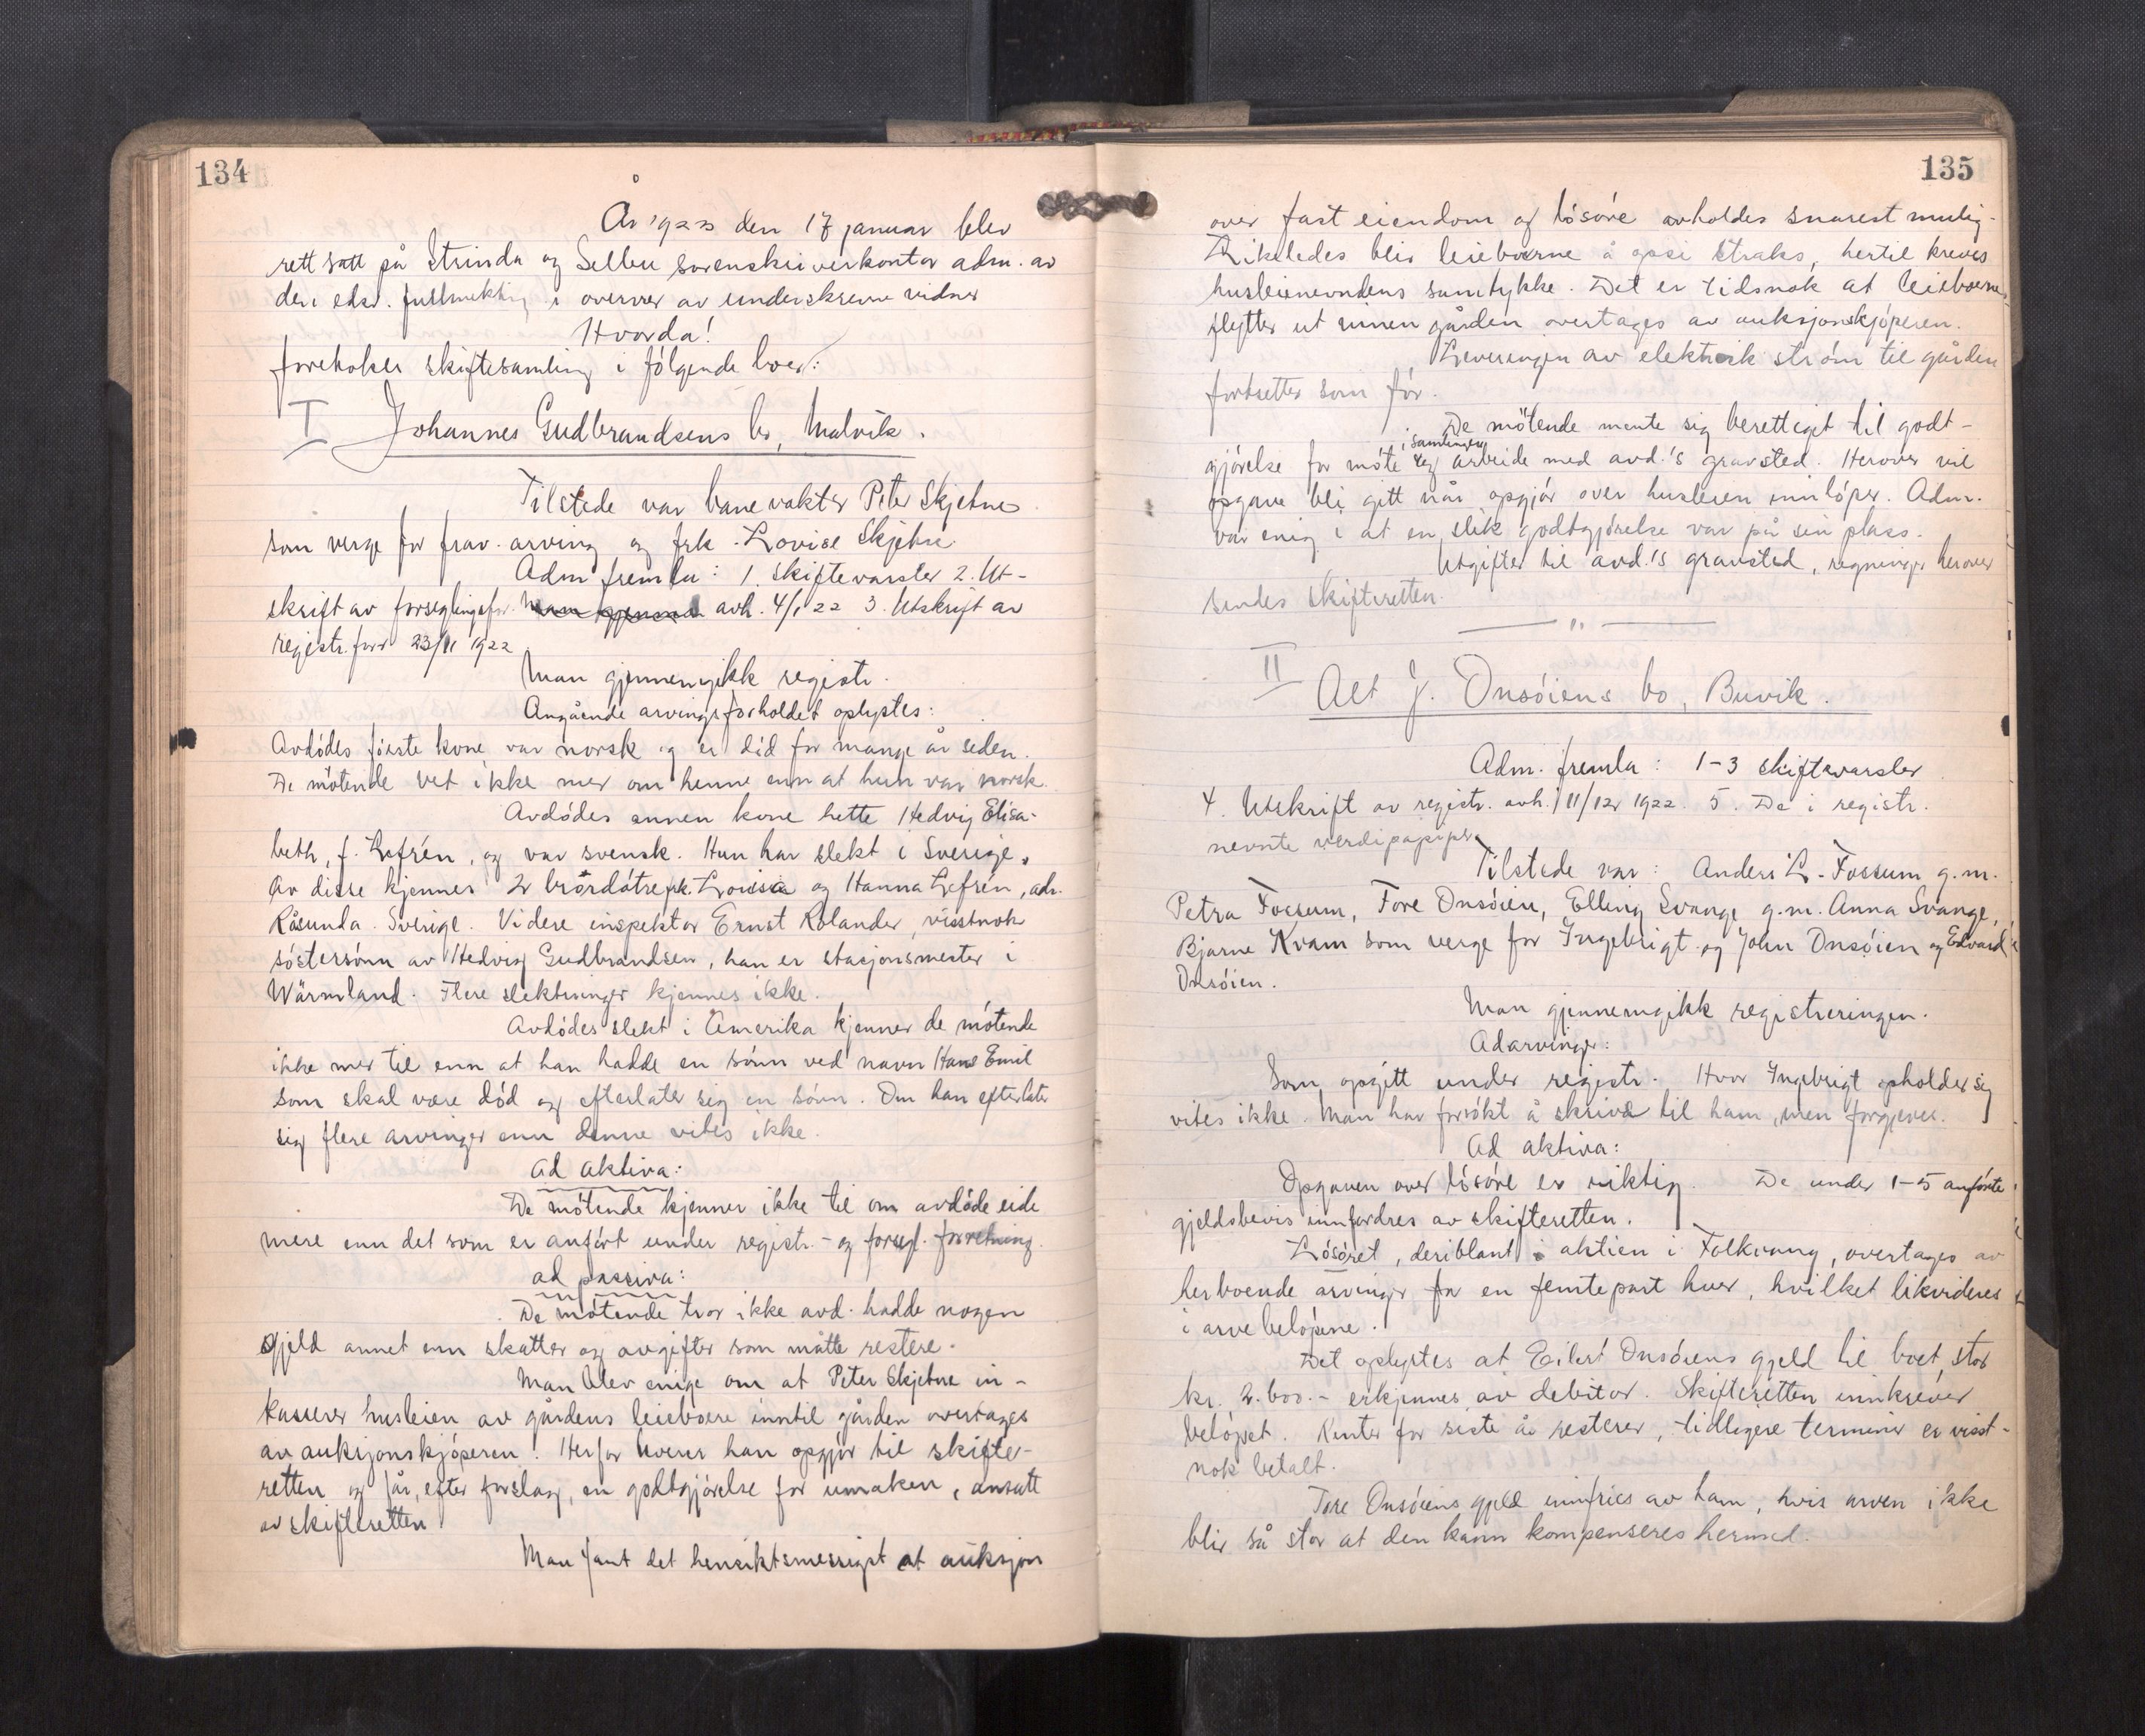 134
År 1923 den 17 januar blev
rett satt på Strinda og Selbu sorenskriverkontor adm. av
den edsv. fullmektig i overvær av underskrevne vidner
Hvorda!
foretokes skiftesamling i følgende boer:
I Johannes Gudbrandsens bo, Malvik.
Tilstede var banevokter Peter Skjetne
som verge for frav. arving og frk. Lovise Skjetne.
Adm fremla: 1. skiftevarsler 2. Ut-
skrift av forseglingsfor. avh. 4/1 22 3. Utskrift av
registr. forr 23/11 1922
Man gjennemgikk registr.
Angående arvingsforholdet oplystes:
Avdødes første kone var norsk og er død for mange år siden.
De møtende vet ikke mer om henne enn at hun var norsk.
Avdødes annen kone hette Hedvig Elisa-
beth, f. Lefrén, og var svensk. Hun har slekt i Sverige.
Av disse kjennes 2 brordøtre frk. Louisa og Hanna Lefrén, adr.
Råsunda. Sverige. Videre inspektør Ernst Rolander, visstnok
søstersønn av Hedvig Gudbrandsen, han er stasjonsmester i
Wärmland. Flere slektninger kjennes ikke.
Avdødes slekt i Amerika kjenner de møtende
ikke mer til enn at han hadde en sønn ved navn Hans Emil
som skal være død og efterlater sig en sønn. Om han efterlater
sig flere arvinger enn denne vites ikke.
ad aktiva:
De møtende kjenner ikke til om avdøde eide
mere enn det som er anført under registr.- og forsegl. forretning.
ad passiva:
De møtende tror ikke avd. hadde nogen
gjeld annet enn skatter og avgifter som måtte restere.
Man blev enige om at Peter Skjetne in-
kasserer husleien av gårdens leieboere inntil gården overtages
av auksjonskjøperen. Herfor leverer han opgjør til skifte-
retten og får, efter forslag, en godtgjørelse for umaken, ansatt
av skifteretten
Man fant det hensiktsmessigst at auksjon
135
over fast eiendom og løsøre avholdes snarest mulig.
Likeledes blir leieboerne å opsi straks, hertil kreves
husleienevndens samtykke. Det er tidsnok at leieboerne
flytter ut innen gården overtages av auksjonskjøperen.
Leveringen av elektrisk strøm til gården
fortsetter som før.
De møtende mente sig berettiget til godt-
i samlingen
gjørelse for møte og arbeide med avd.'s gravsted. Herover vil
opgave bli gitt når opgjør over husleien innløper. Adm.
var enig i at en slik godtgjørelse var på sin plass.
Utgifter til avd.'s gravsted, regninger herover
sendes skifteretten.
II Alt J. Onsøiens bo, Buvik.
Adm. fremla: 1-3 skiftevarsler
4. Utskrift av registr. avh. 11/12 1922. 5. De i registr.
nevnte verdipapirer
Tilstede var: Anders L. Fossum g.m.
Petra Fossum, Tore Onsøien, Elling Svange g.m. Anna Svange,
Bjarne Kvam som verge for Ingebrigt og John Onsøien og Edvard
Onsøien.
Man gjennemgikk registreringen.
Ad arvinger:
Som opgitt under registr. Hvor Ingebrigt opholder sig
vites ikke. Man har forsøkt å skrive til ham, men forgjeves.
Ad aktiva:
Opgaven over løsøre er riktig. De under 1-5 anførte
gjeldsbevis innfordres av skifteretten.
Løsøret, deriblant aktien i Folkvang, overtages av
herboende arvinger for en femtepart hver, hvilket likvideres
i arvebeløpene.
Det oplystes at Eilert Onsøiens gjeld til boet, stor
kr. 2.600.- erkjennes av debitor. Skifteretten innkrever
beløpet. Renter for siste år resterer, tidligere terminer er visst-
nok betalt.
Tore Onsøiens gjeld innfries av ham, hvis arven ikke
blir så stor at den kann kompenseres hermed.